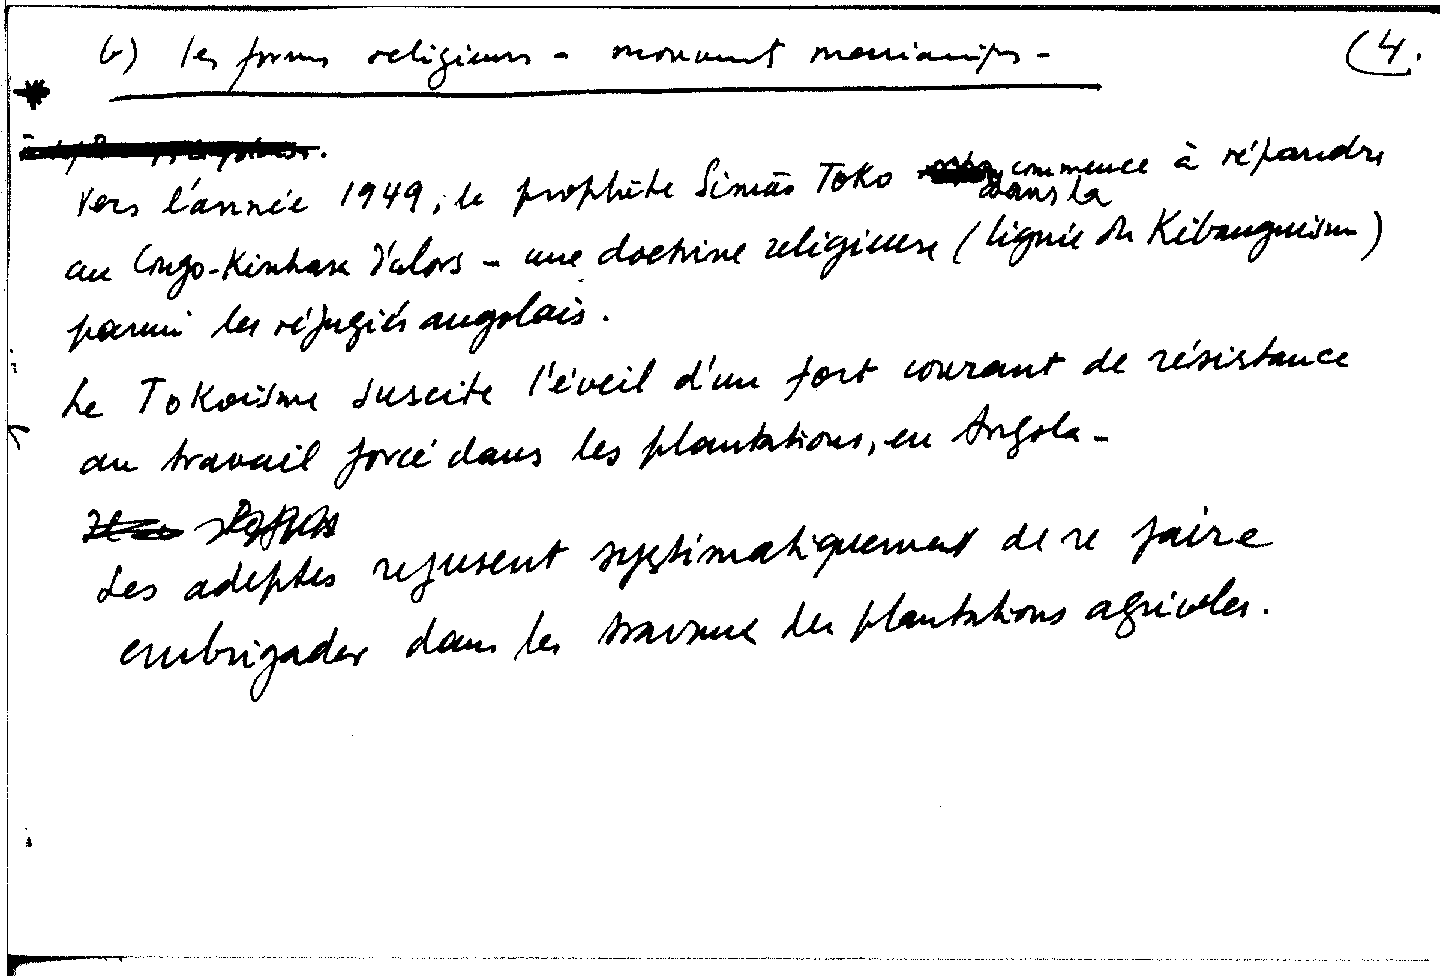 b) les formes religieuses - mouvements messianiques - (4.
Vers l'année 1949, le prophète Simão Toko commence à répandre
dans la
au Congo-Kinshasa d'alors - une doctrine religieuse (lignée du Kibanguisme)
parmi les réfugiés angolais.
Le Tokoïsme suscite l'éveil d'un fort courant de résistance
au travail forcé dans les plantations, en Angola -
Les adeptes refusent systématiquement de se faire
embrigader dans les travaux des plantations agricoles.